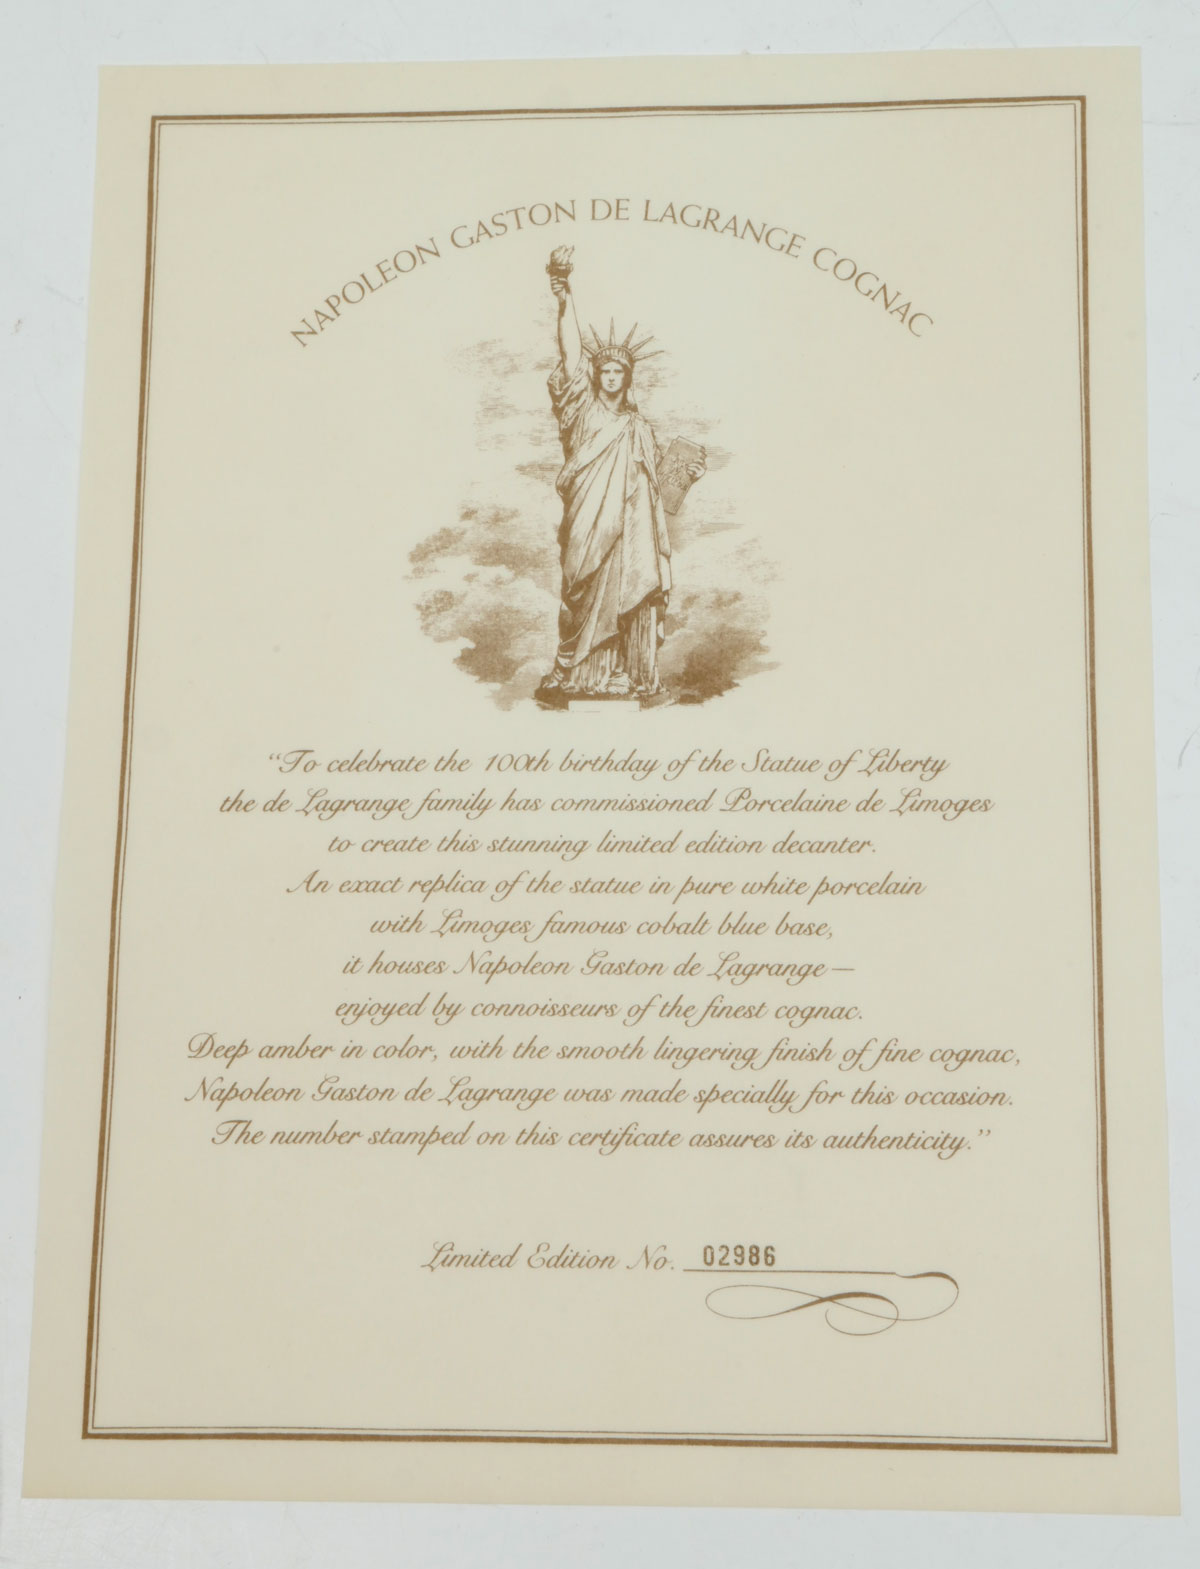 NAPOLEON GASTON DE LAGRANGE COGNAC
“To celebrate the 100th birthday of the Statue of Liberty
the de Lagrange family has commissioned Porcelaine de Limoges
to create this stunning limited edition decanter.
An exact replica of the statue in pure white porcelain
with Limoges famous cobalt blue base,
it houses Napoleon Gaston de Lagrange—
enjoyed by connoisseurs of the finest cognac.
Deep amber in color, with the smooth lingering finish of fine cognac,
Napoleon Gaston de Lagrange was made specially for this occasion.
The number stamped on this certificate assures its authenticity.”
Limited Edition No. 02986